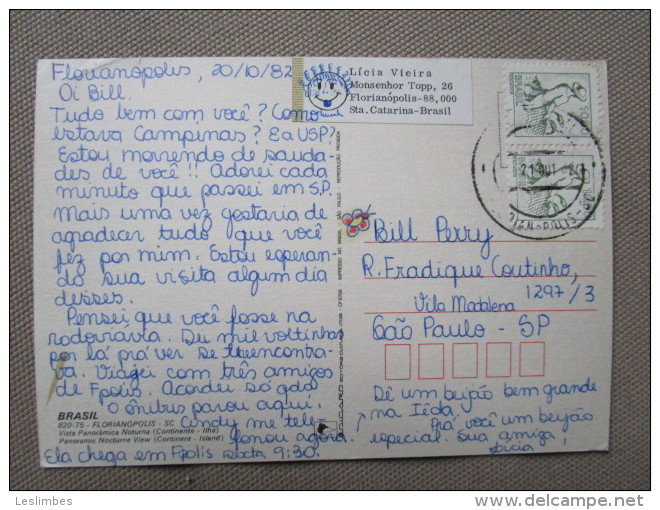 Florianópolis, 20/10/82
Oi Bill.
Tudo bem com você? Como
estava Campinas? E a USP?
Estou morrendo de sauda-
des de você!! Adorei cada
minuto que passei em S.P.
Mais uma vez gostaria de
agradecer tudo que você
fez por mim. Estou esperan-
do sua visita algum dia
desses.
Pensei que você fosse na
rodoviária. Dei mil voltinhas
por lá prá ver se te encontra-
va. Viajei com três amigos
de Fpolis. Acordei só qdo
o ônibus parou aqui.
Cindy me tele-
fonou agora.
Ela chega em Fpolis sexta 9:30.
BRASIL
820-75 - FLORIANÓPOLIS - SC
Vista Panorâmica Noturna (Continente - Ilha)
Panoramic Nocturne View (Continent - Island)
Lícia Vieira
Monsenhor Topp, 26
Florianópolis-88,000
Sta. Catarina-Brasil
IMPRESSO NO BRASIL
SÃO PAULO - REPRODUÇÃO PROIBIDA
BRASIL
BRASIL
Bill Perry
R. Fradique Coutinho,
1297/3
Vila Madalena
São Paulo - SP
Dê um beijão bem grande
na Iêda.
Prá você um beijão
especial. Sua amiga,
Lícia
Leslimbes
©delcampe.net